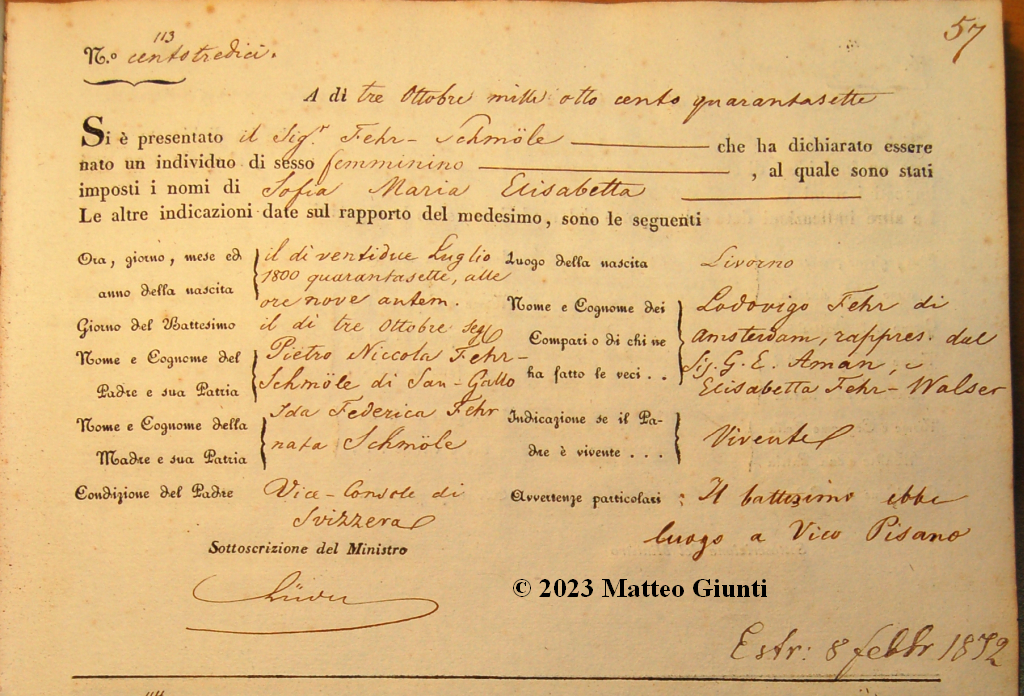 57
113
N.º centotredici.
A dì tre Ottobre mille otto cento quarantasette
Si è presentato il Sigr Fehr-Schmöle che ha dichiarato essere
nato un individuo di sesso femminino , al quale sono stati
imposti i nomi di Sofia Maria Elisabetta
Le altre indicazioni date sul rapporto del medesimo, sono le seguenti
Ora, giorno, mese ed
anno della nascita
il di ventidue Luglio
1800 quarantasette, alle
ore nove antem.
Giorno del Battesimo il di tre Ottobre seg
Nome e Cognome del
Padre e sua Patria
Pietro Niccola Fehr-
Schmöle di San-Gallo
Nome e Cognome della
Madre e sua Patria
Ida Federica Fehr
nata Schmöle
Condizione del Padre Vice-Console di
Svizzera
Luogo della nascita Livorno
Nome e Cognome dei
Compari o di chi ne
ha fatto le veci . .
Lodovigo Fehr di
Amsterdam, rappres. dal
Sig. G. E. Aman, e
Elisabetta Fehr-Walser
Indicazione se il Pa-
dre è vivente . . .
Vivente
Avvertenze particolari : Il battesimo ebbe
luogo a Vico Pisano
Sottoscrizione del Ministro
© 2023 Matteo Giunti
Estr: 8 febbr 1872